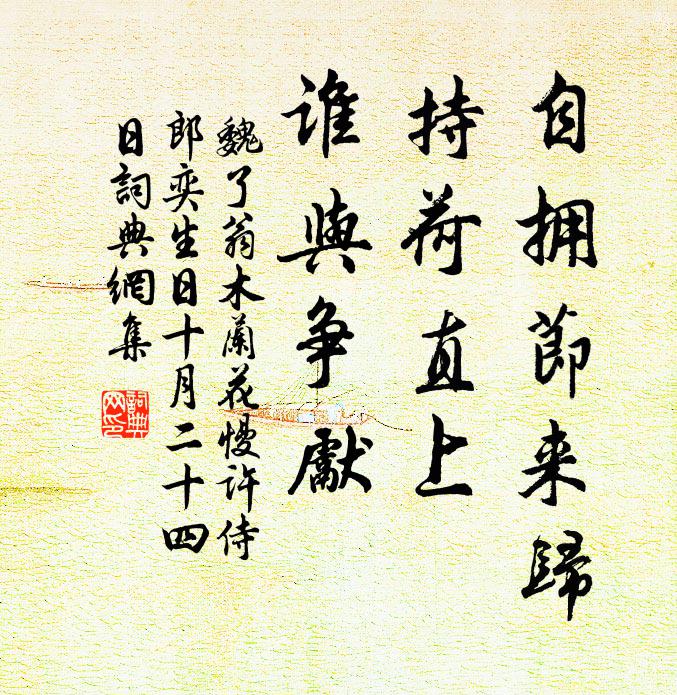 自拥節来歸
持荷直上
谁與争獻
魏了翁木蘭花慢许侍
郎奕生日十月二十四
日詞典網集
詞典网印